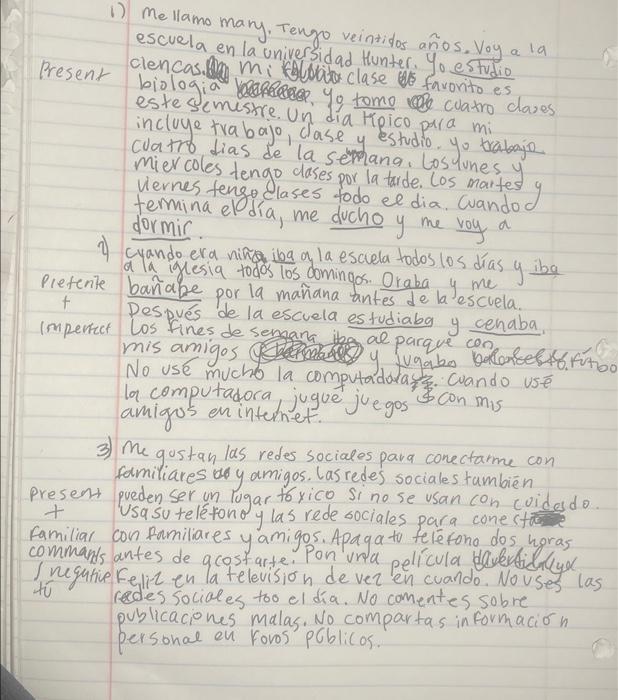 1) Me llamo mary. Tengo veintidos años. Voy a la
escuela en la universidad Hunter. Yo estudio
Present
ciencas. mi clase favorito es
biología. Yo tomo cuatro clases
este semestre. Un día típico para mi
incluye trabajo, clase y estudio. yo trabajo
cuatro dias de la semana. Los lunes y
miercoles tengo clases por la tarde. Los martes y
viernes tengo clases todo el dia. Cuando
termina el día, me ducho y me voy a
dormir.
2) cuando era niña iba a la escuela todos los días y iba
a la iglesia todos los domingos. Oraba y me
Pretente
+
Imperfect
bañabe por la mañana antes de la escuela.
Después de la escuela estudiaba y cenaba.
Los fines de semana iba al parque con
mis amigos y jugaba fútbo
No usé mucho la computadora. Cuando usé
la computadora, jugué juegos con mis
amigos en internet.
3) Me gustan las redes sociales para conectarme con
familiares y amigos. Las redes sociales también
Present
+
familiar
commands
/ negative
tú
pueden ser un lugar tóxico si no se usan con cuidado.
Usa su teléfono y las rede sociales para conest
con familiares y amigos. Apaga tu teléfono dos horas
antes de acostarte. Pon una película
Feliz en la televisión de vez en cuando. No uses las
redes sociales too el día. No comentes sobre
publicaciones malas. No compartas informacion
personal en foros públicos.